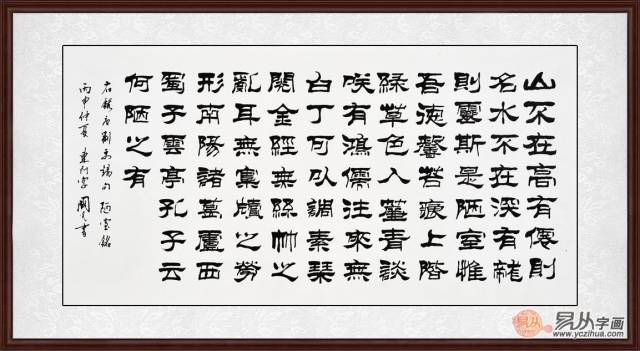 山不在高有僊則
名水不在深有龍
則靈斯是陋室惟
吾德馨苔痕上階
綠草色入簾青談
咲有鴻儒往來無
白丁可以調素琴
閱金經無絲竹之
亂耳無案牘之勞
形南陽諸葛廬西
蜀子雲亭孔子云
何陋之有
右錄唐劉禹錫句 陋室銘
丙申仲夏 書
易从
易从字画
www.yczihua.com